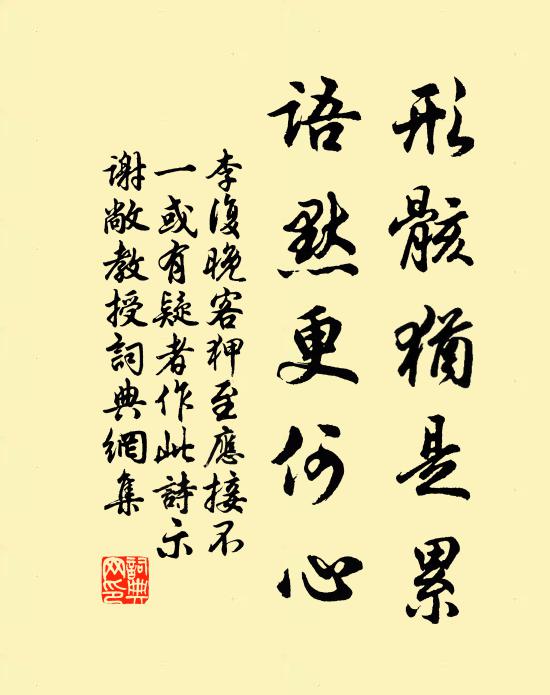 形骸猶是累
語默更何心
李復晚客狎至應接不
一或有疑者作此詩示
謝敞教授詞典網集
詞典
网印